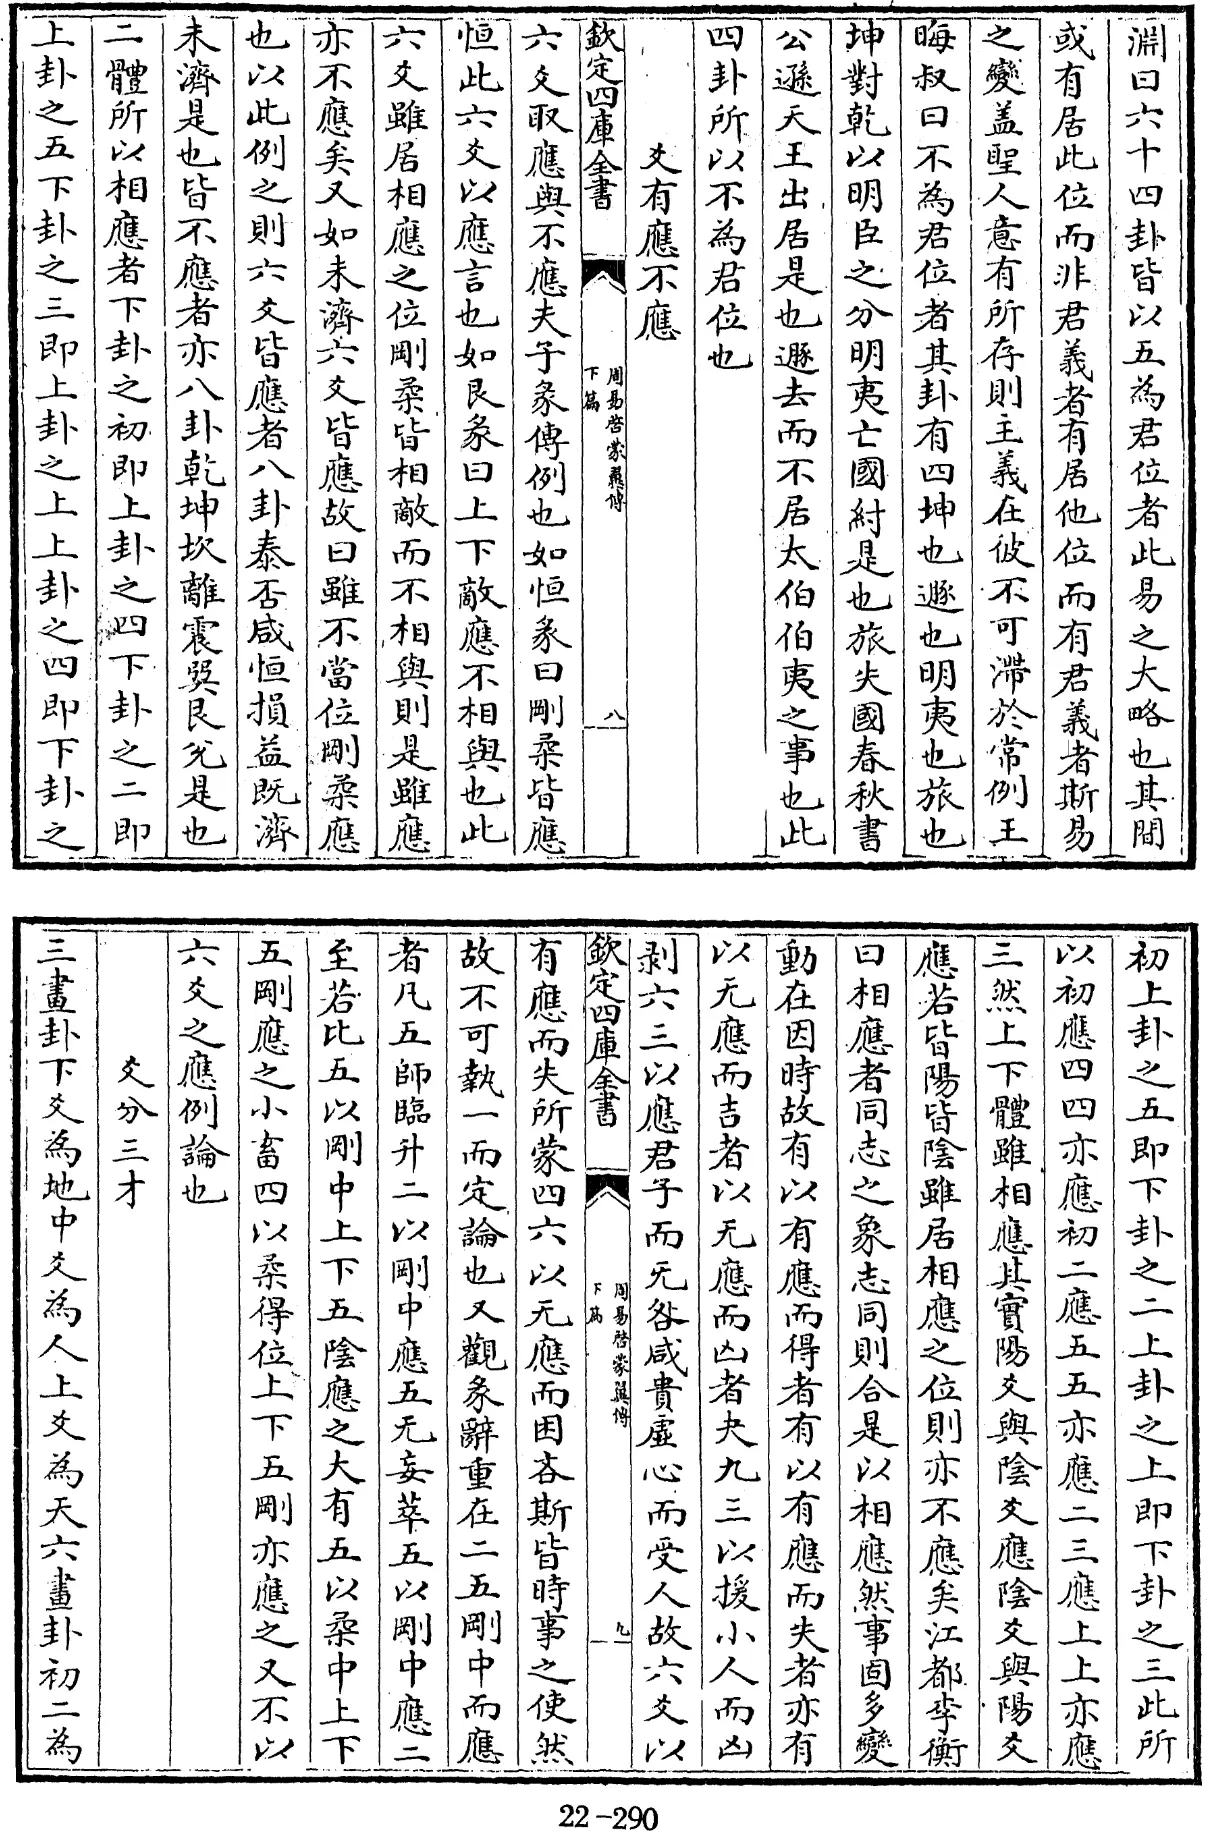 淵曰六十四卦皆以五為君位者此易之大略也其間
或有居此位而非君義者有居他位而有君義者斯易
之變盖聖人意有所存則主義在彼不可滯於常例王
晦叔曰不為君位者其卦有四坤也遯也明夷也旅也
坤對乾以明臣之分明夷亡國紂是也旅失國春秋書
公遜天王出居是也遯去而不居太伯伯夷之事也此
四卦所以不為君位也
爻有應不應
欽定四庫全書
周易啓蒙翼傳
下篇
八
六爻取應與不應夫子彖傳例也如恒彖曰剛柔皆應
恒此六爻以應言也如艮彖曰上下敵應不相與也此
六爻雖居相應之位剛柔皆相敵而不相與則是雖應
亦不應矣又如未濟六爻皆應故曰雖不當位剛柔應
也以此例之則六爻皆應者八卦泰否咸恒損益既濟
未濟是也皆不應者亦八卦乾坤坎離震巽艮兊是也
二體所以相應者下卦之初即上卦之四下卦之二即
上卦之五下卦之三即上卦之上上卦之四即下卦之
初上卦之五即下卦之二上卦之上即下卦之三此所
以初應四四亦應初二應五五亦應二三應上上亦應
三然上下體雖相應其實陽爻與陰爻應陰爻與陽爻
應若皆陽皆陰雖居相應之位則亦不應矣江都李衡
曰相應者同志之象志同則合是以相應然事固多變
動在因時故有以有應而得者有以有應而失者亦有
以无應而吉者以无應而凶者夬九三以援小人而凶
剥六三以應君子而无咎咸貴虛心而受人故六爻以
欽定四庫全書
周易啓蒙翼傳
下篇
九
有應而失所蒙四六以无應而困吝斯皆時事之使然
故不可執一而定論也又觀彖辭重在二五剛中而應
者凡五師臨升二以剛中應五无妄萃五以剛中應二
至若比五以剛中上下五陰應之大有五以柔中上下
五剛應之小畜四以柔得位上下五剛亦應之又不以
六爻之應例論也
爻分三才
三畫卦下爻為地中爻為人上爻為天六畫卦初二為
22-290